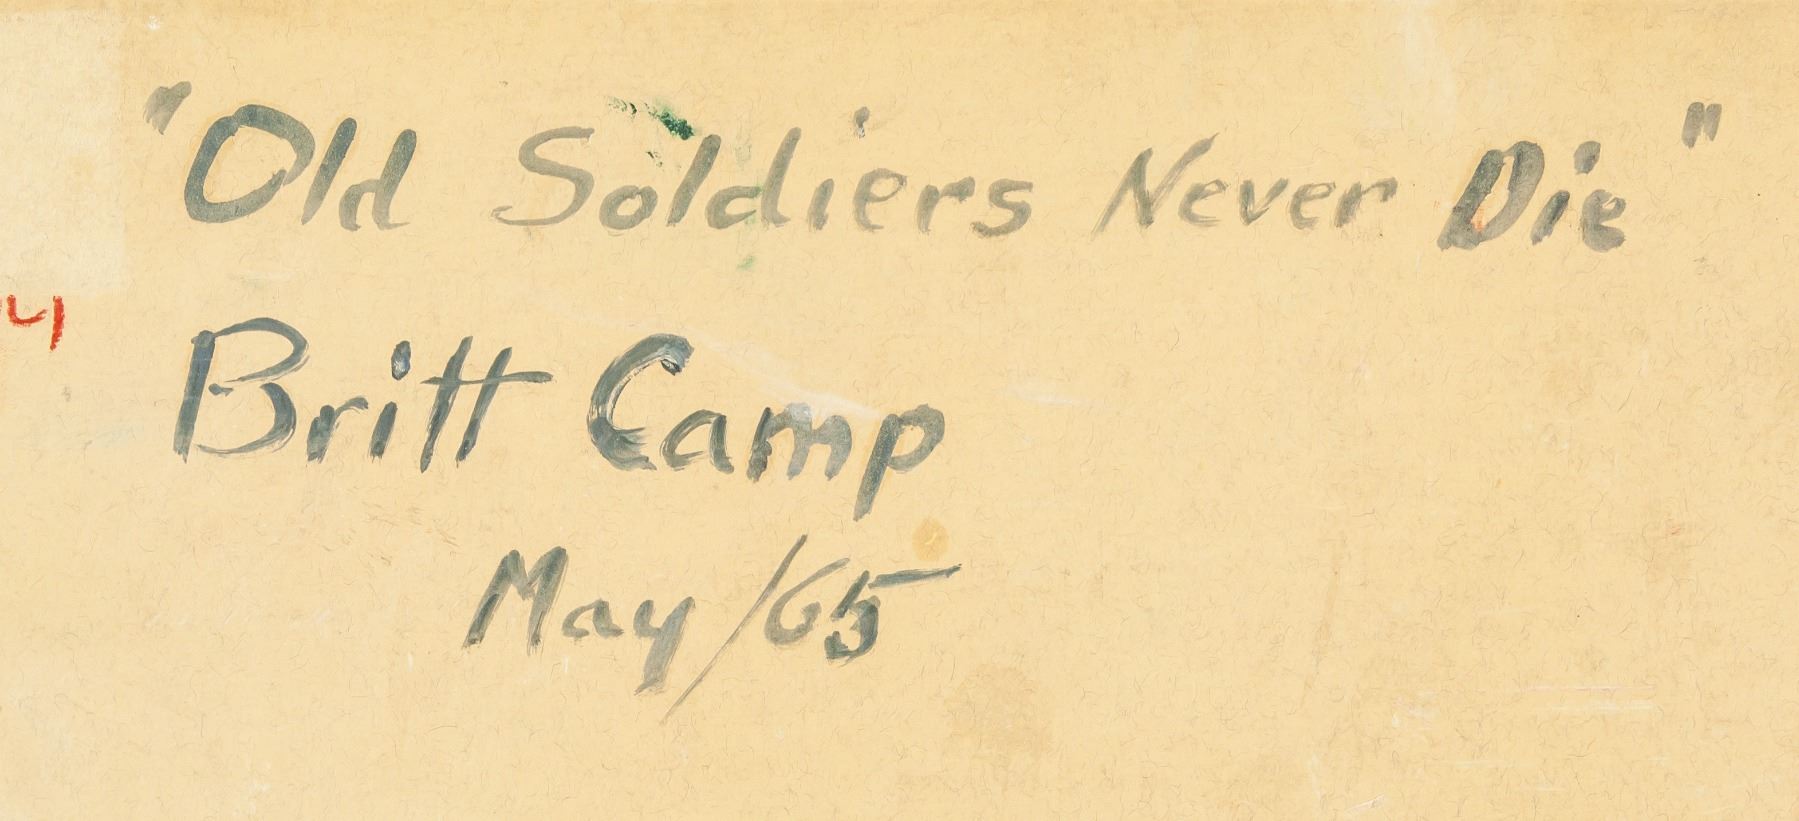 "Old Soldiers Never Die"
Britt Camp
May/65